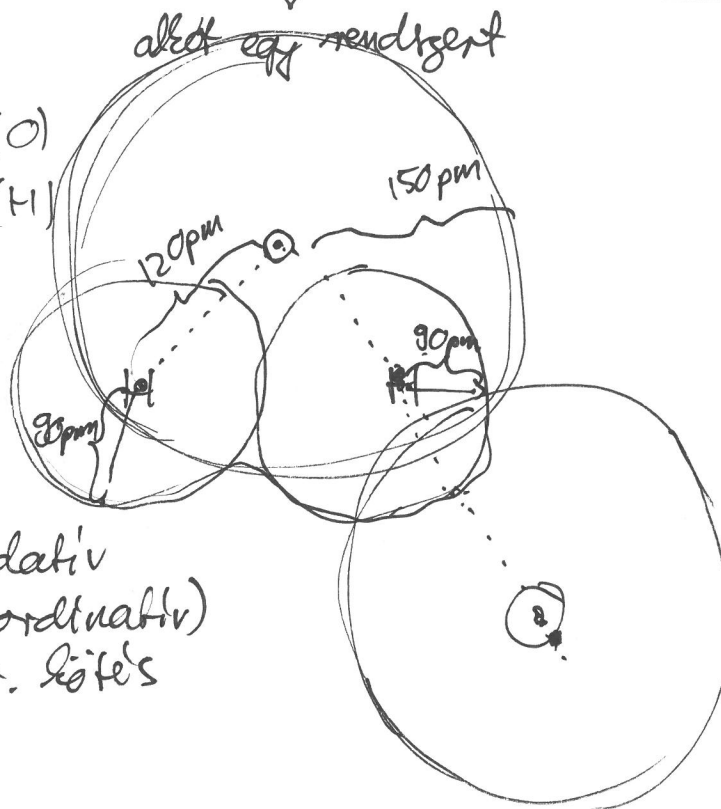 alkot egy rendszert
O)
H)
150pm
120pm
90pm
H
H
90pm
datív
ordinatív)
. kötés